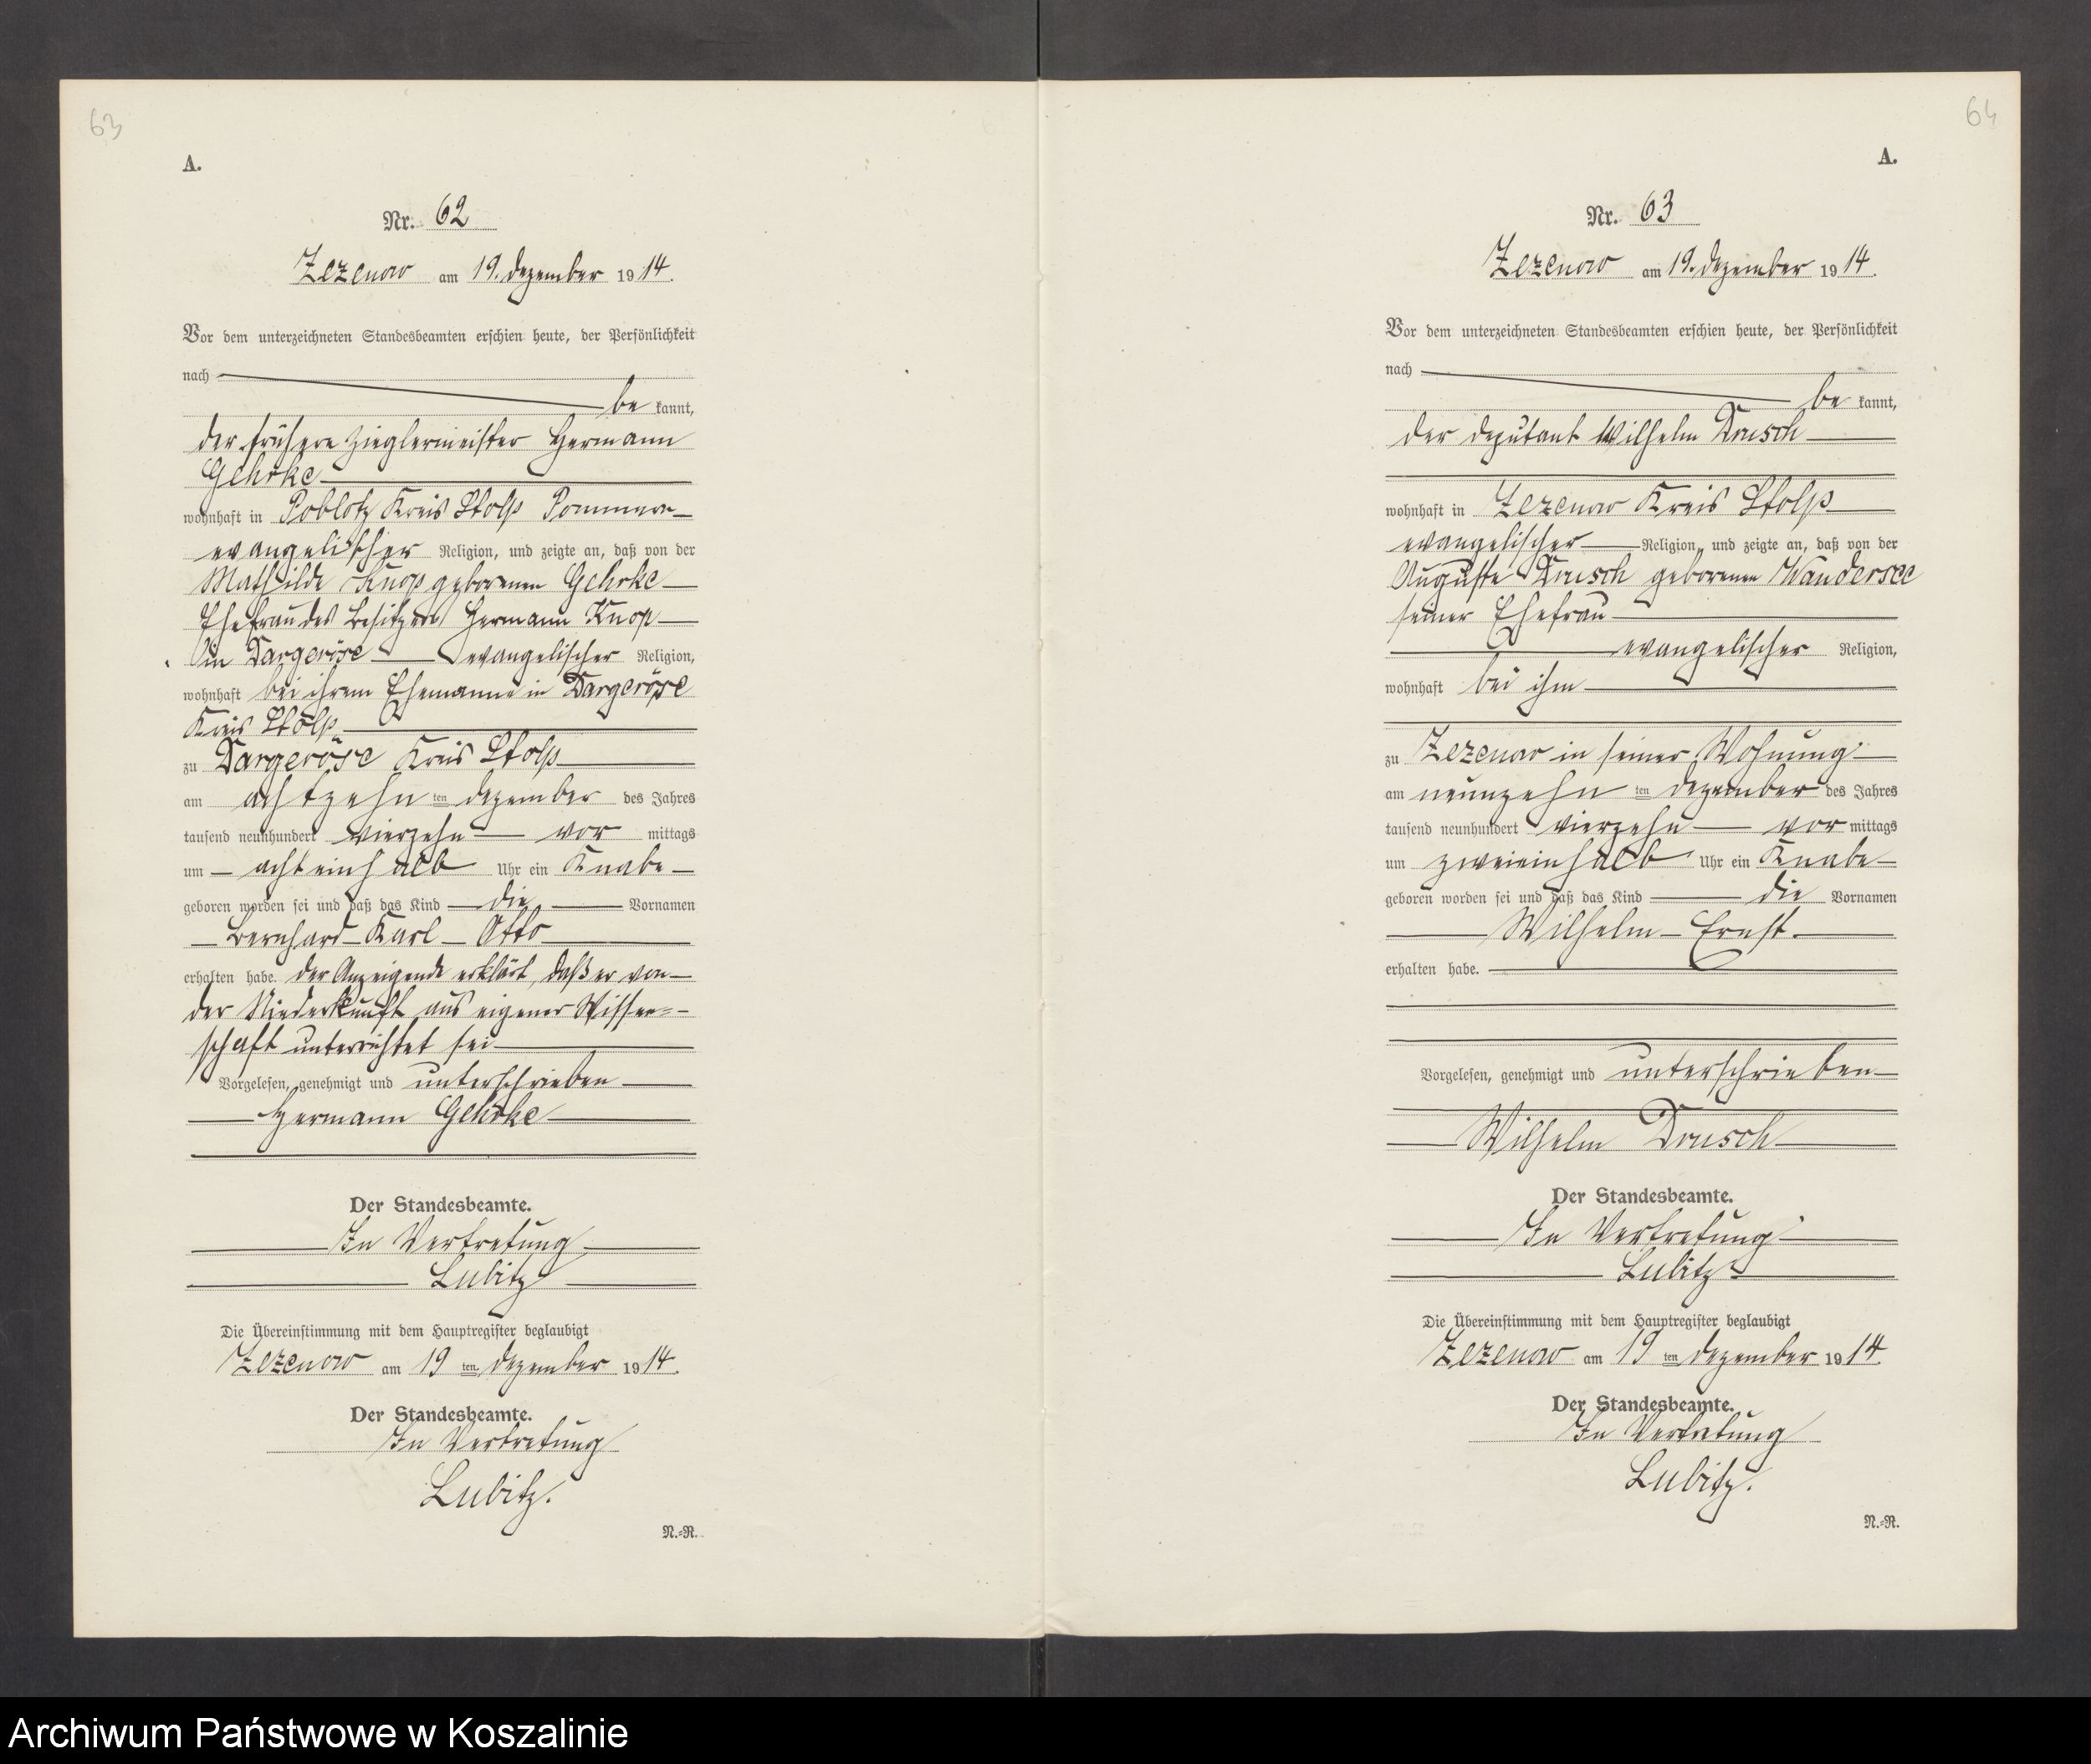 63
A.
Nr. 62
Zezenow am 19. Dezember 1914.
Vor dem unterzeichneten Standesbeamten erschien heute, der Persönlichkeit
nach
be kannt,
der frühere Zieglermeister Hermann
Gehrke
wohnhaft in Poblotz Kreis Stolp Pommern
evangelischer Religion, und zeigte an, daß von der
Mathilde Knop geborenen Gehrke
Ehefrau des Besitzers Hermann Knop
in Dargeröse evangelischer Religion,
wohnhaft bei ihrem Ehemanne in Dargeröse
Kreis Stolp
zu Dargeröse Kreis Stolp
am achtzehn ten Dezember des Jahres
tausend neunhundert vierzehn vor mittags
um achteinhalb Uhr ein Knabe
geboren worden sei und daß das Kind die Vornamen
Bernhard Karl Otto
erhalten habe. Der Anzeigende erklärt, daß er von
der Niederkunft aus eigener Wissen=
schaft unterrichtet sei
Vorgelesen, genehmigt und unterschrieben
Hermann Gehrke
Der Standesbeamte.
In Vertretung
Lubitz
Die Übereinstimmung mit dem Hauptregister beglaubigt
Zezenow am 19 ten Dezember 1914.
Der Standesbeamte.
In Vertretung
Lubitz.
N.=R.
64
A.
Nr. 63
Zezenow am 19. Dezember 1914.
Vor dem unterzeichneten Standesbeamten erschien heute, der Persönlichkeit
nach
be kannt,
der Deputant Wilhelm
wohnhaft in Zezenow Kreis Stolp
evangelischer Religion, und zeigte an, daß von der
Auguste geborenen Wandersee
seiner Ehefrau
evangelischer Religion,
wohnhaft bei ihm
zu Zezenow in seiner Wohnung
am neunzehn ten Dezember des Jahres
tausend neunhundert vierzehn vor mittags
um zweieinhalb Uhr ein Knabe
geboren worden sei und daß das Kind die Vornamen
Wilhelm Ernst
erhalten habe.
Vorgelesen, genehmigt und unterschrieben
Wilhelm
Der Standesbeamte.
In Vertretung
Lubitz
Die Übereinstimmung mit dem Hauptregister beglaubigt
Zezenow am 19 ten Dezember 1914.
Der Standesbeamte.
In Vertretung
Lubitz.
N.=R.
Archiwum Państwowe w Koszalinie